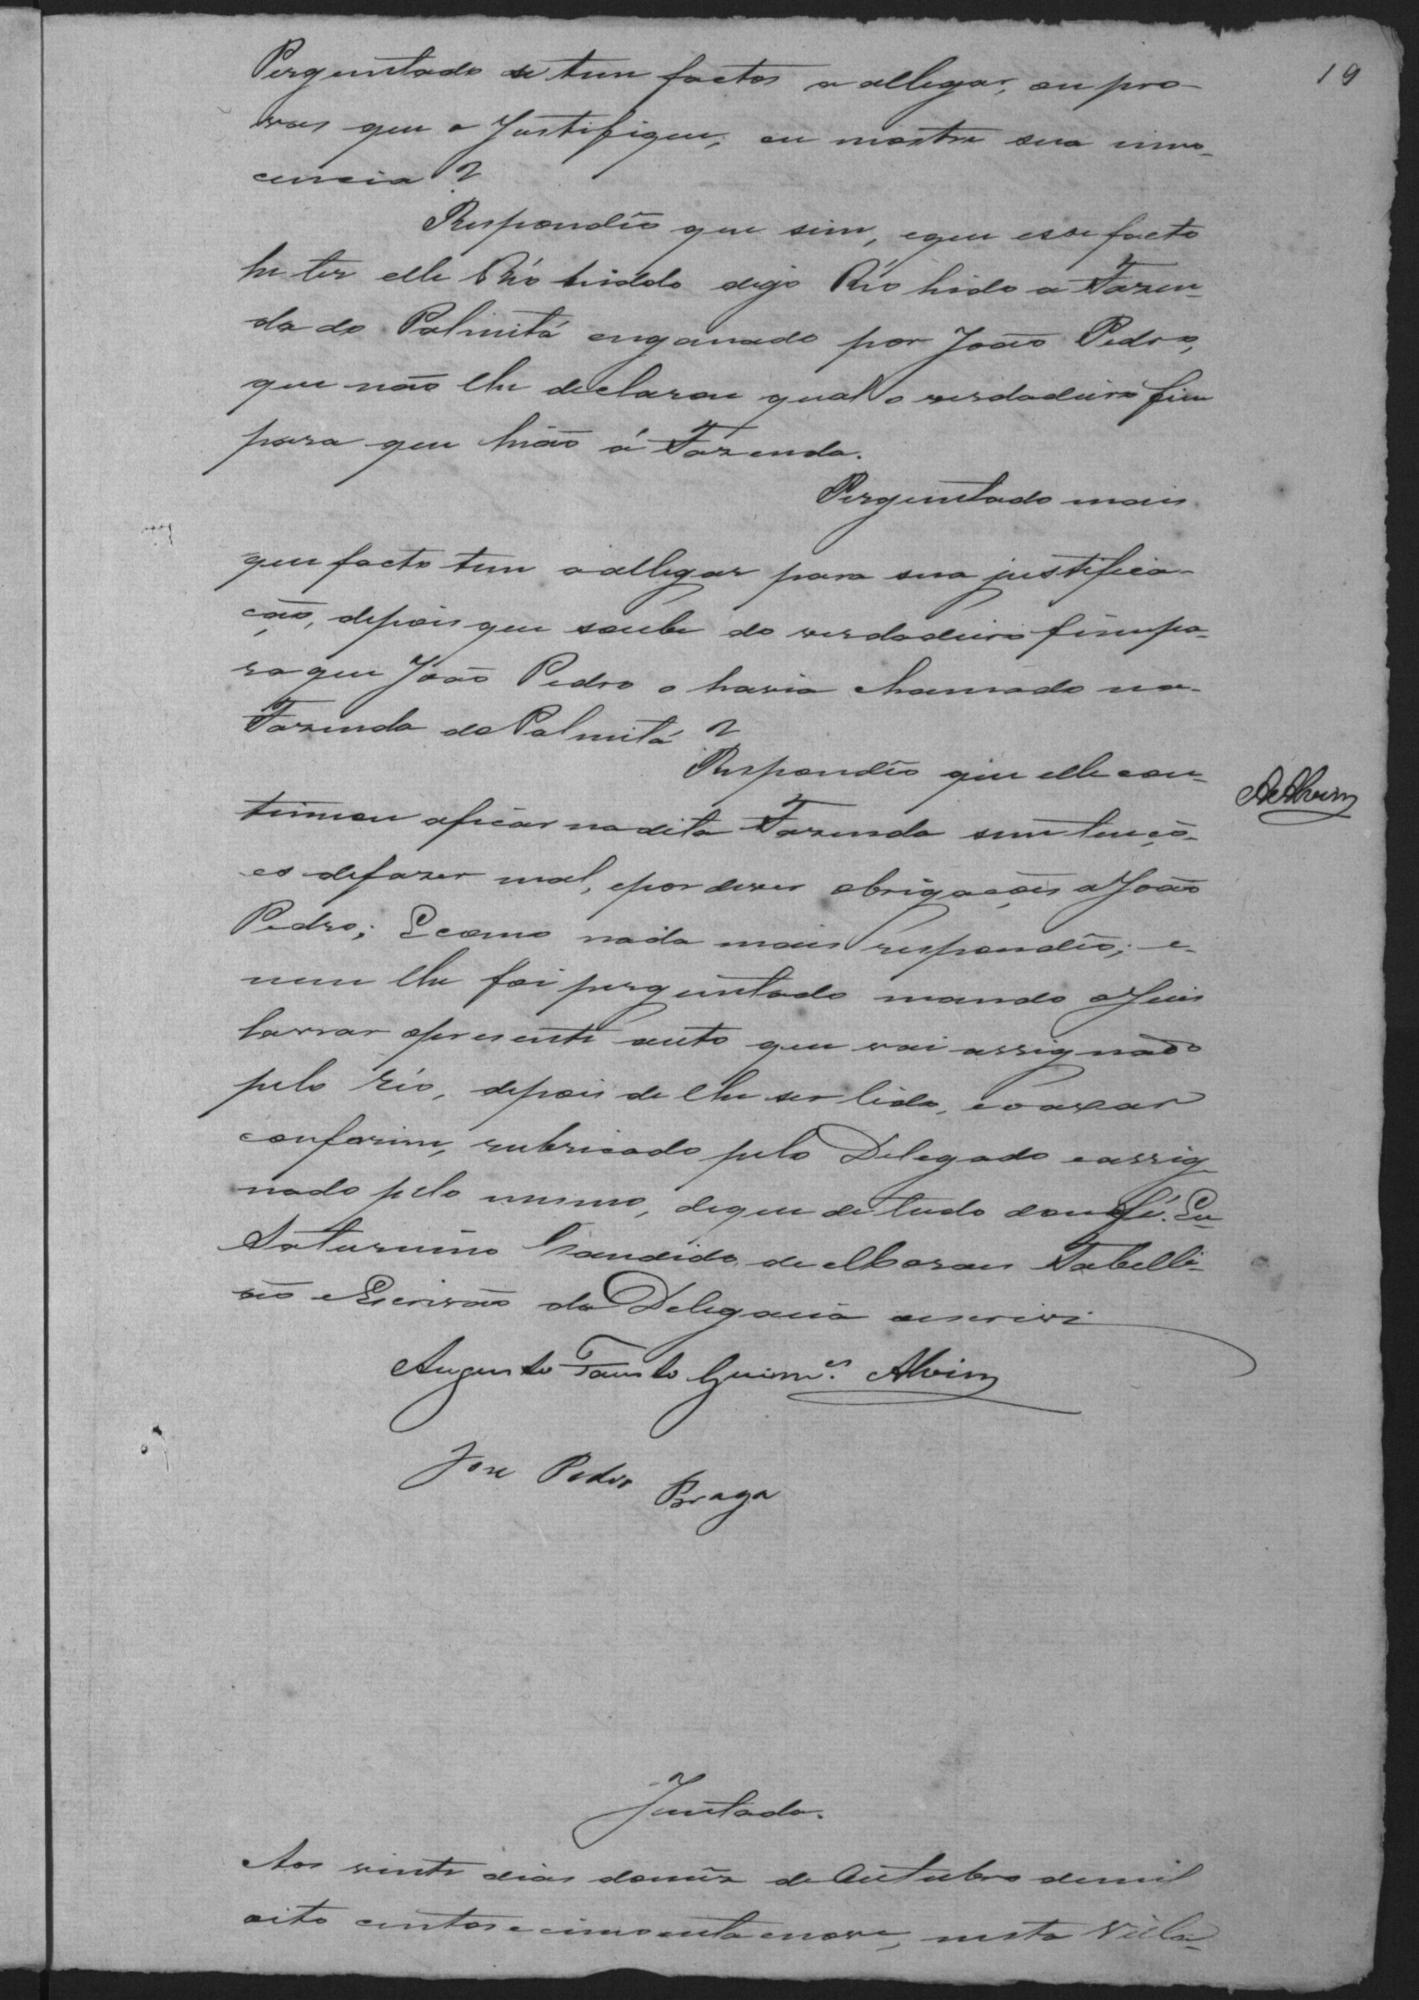 19
Perguntado se tem factos a allegar, ou pro-
vas que o Justifiquem, ou mostre sua inno-
cencia?
Respondêo que sim, e que esse facto
he ter elle Réo hiddo digo Réo hido a Fazen-
da do Palmitá enganado por João Pedro,
que não lhe declarou qual o verdadeiro fim
para que hião á Fazenda.
Perguntado mais
que facto tem a allegar para sua justifica-
ção, depois que soube do verdadeiro fim pa-
ra que João Pedro o havia chamado na
Fazenda do Palmitá?
Respondêo que elle con-
AcAlvim
tinuou a ficar na dita Fazenda sem tençõ-
es de fazer mal, e por dever obrigações a João
Pedro; E como nada mais respondêo, e
nem lhe foi perguntado mandou o Juis
lavrar o presente auto que vai assignado
pelo réo, depois de lhe ser lido, e o axar
conforme, rubricado pelo Delegado e assig
nado pelo mesmo, do que de tudo dou fé. Eu
Saturnino Candido de Moraes Tabelli-
ão e Escrivão da Delegacia o escrivi
Augusto Fausto Guim.es Alvim
Jose Pedro Braga
Juntada.
Aos vinte dias do mêz de Outubro de mil
oito centos e cincoenta e nove, nesta Villa